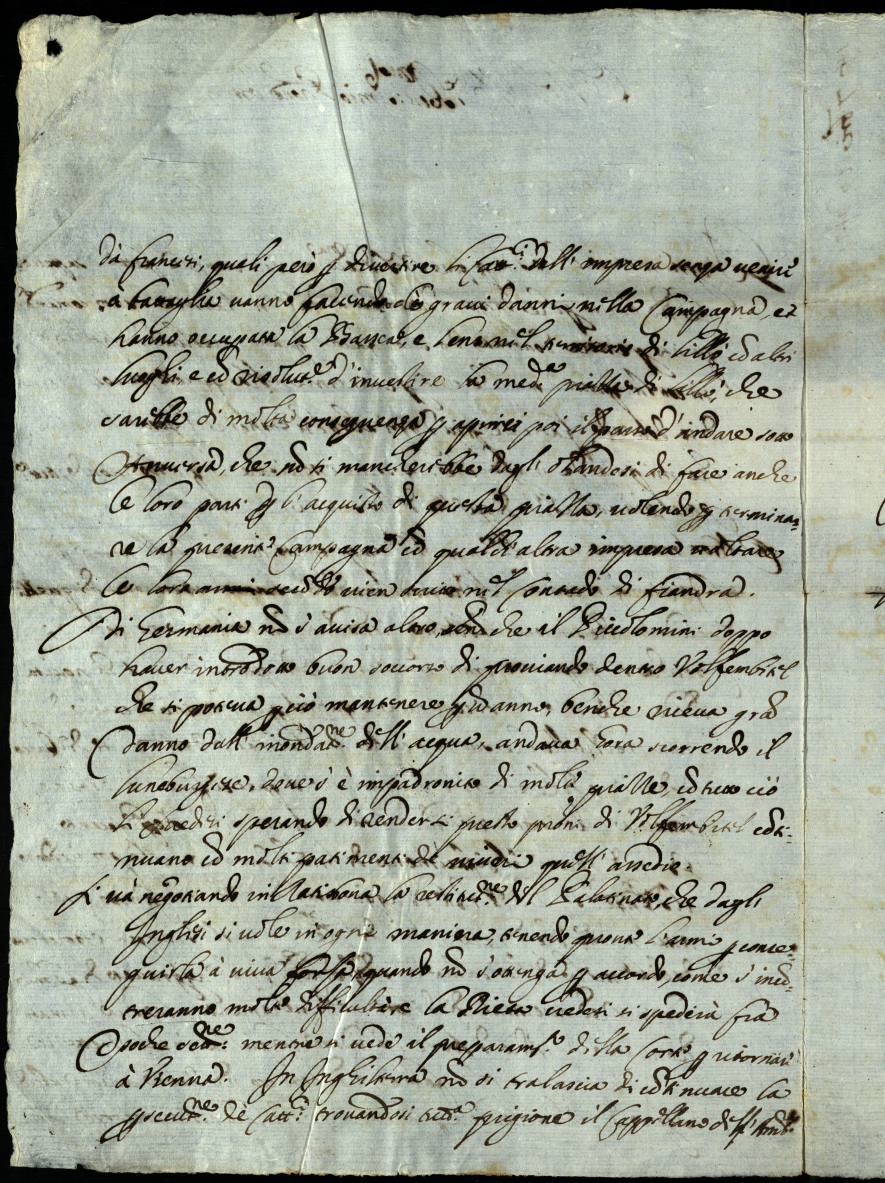 da francesi, quali però p divertire li Catt.ci dall' impresa senza venire
a battaglia vanno facendo gravi danni nella Campagna, et
hanno occupata la Bassea, e Lens nel territorio di Lilla, con altri
luoghi, e con risolut.e d' investire la med.a piazza di Lilla, che
sarebbe di molta conseguenza p aprirsi poi il passo d' andare sotto
Anversa, che non si mancherebbe dagl' Olandesi di fare anche
le loro parti p l' acquisto di questa piazza, volendo p termina=
re la presente Campagna con qualch' altra impresa
le loro armi secondo vien scritto nel Contado di fiandra.
Di Germania non s' avisa altro, se non che il Picolomini doppo
haver introdotto buon soccorso di proviando dentro Volfembitel
che si poteva p ciò mantenere p un anno, benche riceva gran
danno dall' inondat.ne dell' acqua, andava hora scorrendo il
Luneburgese, dove s' è impadronito di molte piazze, con tutto ciò
li Svedesi sperando di rendersi presto proni di Volfembitel conti=
nuano con molti patimenti de viveri quell' assedio.
Si và negotiando in Ratisbona la restitut.ne del Palatinato, che dagli
Inglesi si vole in ogni maniera, tenendo pronte l' armi p conse=
guirla à viva forza, quando non s' ottenga p accordo, come s' incon=
treranno molte difficultà, e la Dieta vedesi si spedirà fra
poche sett.ne mentre si vede il preparam.to della Corte p ritornare
à Vienna. In Inghilterra non si tralascia di continuare la
psecut.ne de Catt.ci trovandosi tutta.a prigione il Cappellano dell' Amb.re